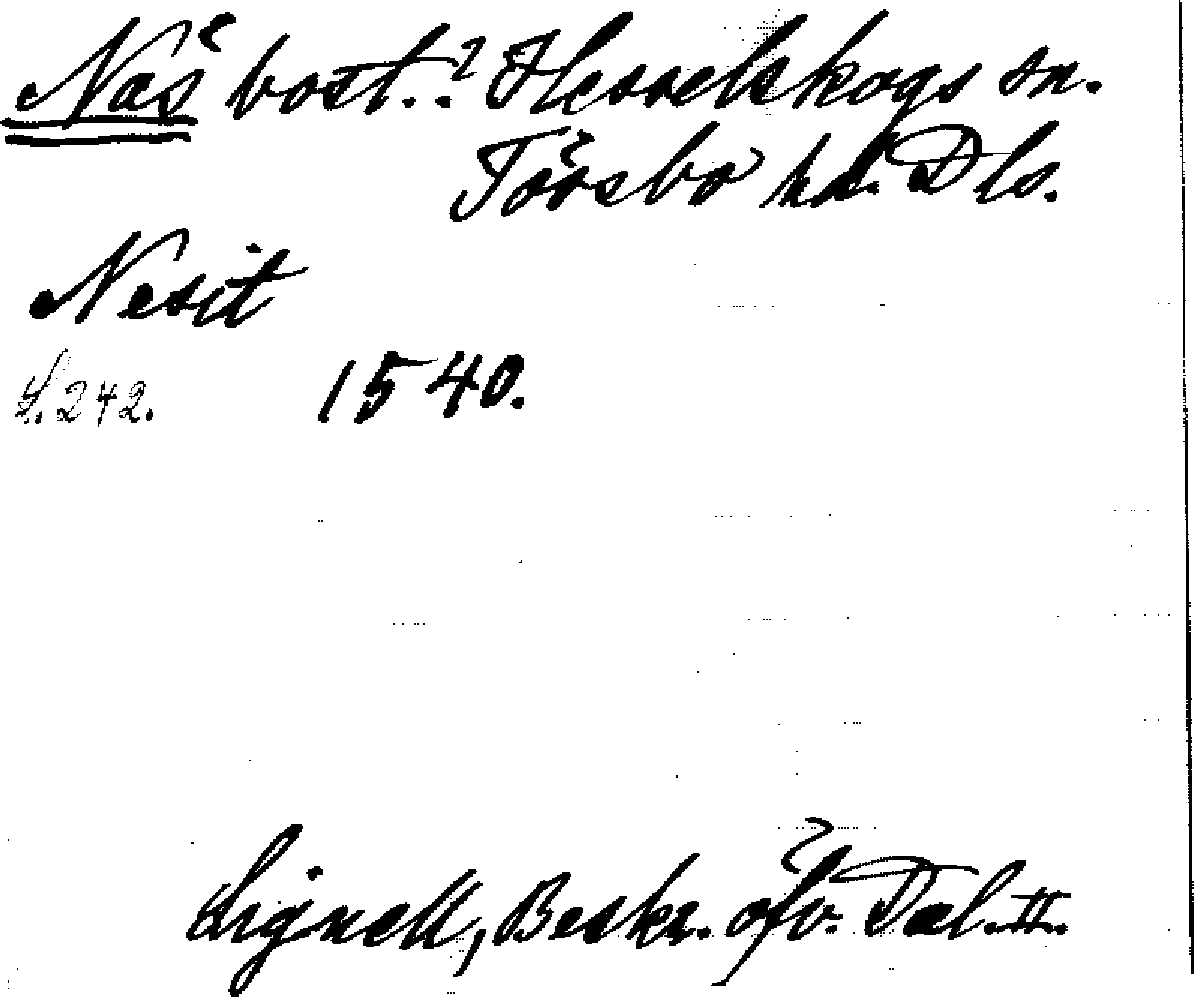 Näs bost..? Hesselskogs sn.
Tössbo hd. Dls.
Nesit
S. 242. 1540.
Lignell, Beskr. öfv. Dal. II.